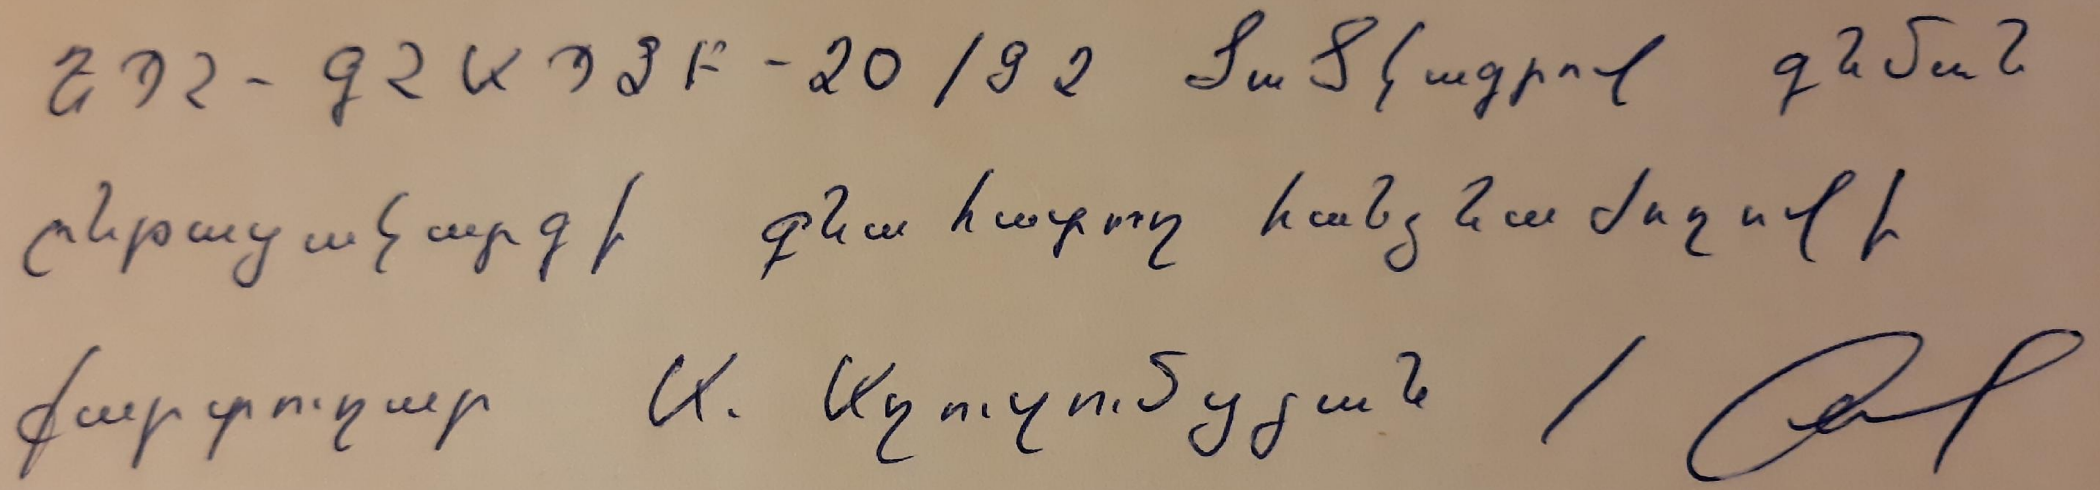 ԵՊՀ-ԳՀԱՊՁԲ-20/92 ծածկագրով գնման
ընթացակարգի գնահատող հանձնաժողովի
քարտուղար Ա. Աղուզումցյան /